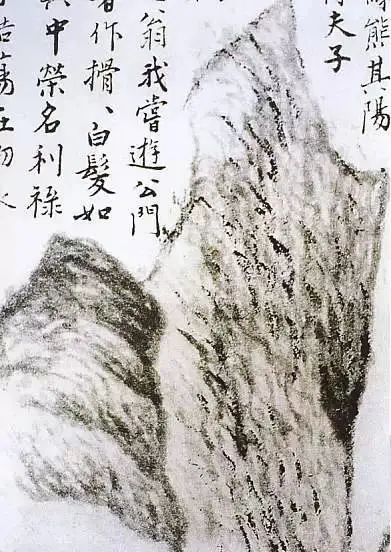 熊其陽
夫子
翁我嘗遊公門
作搰、白髮如
中榮名利祿
蕩在